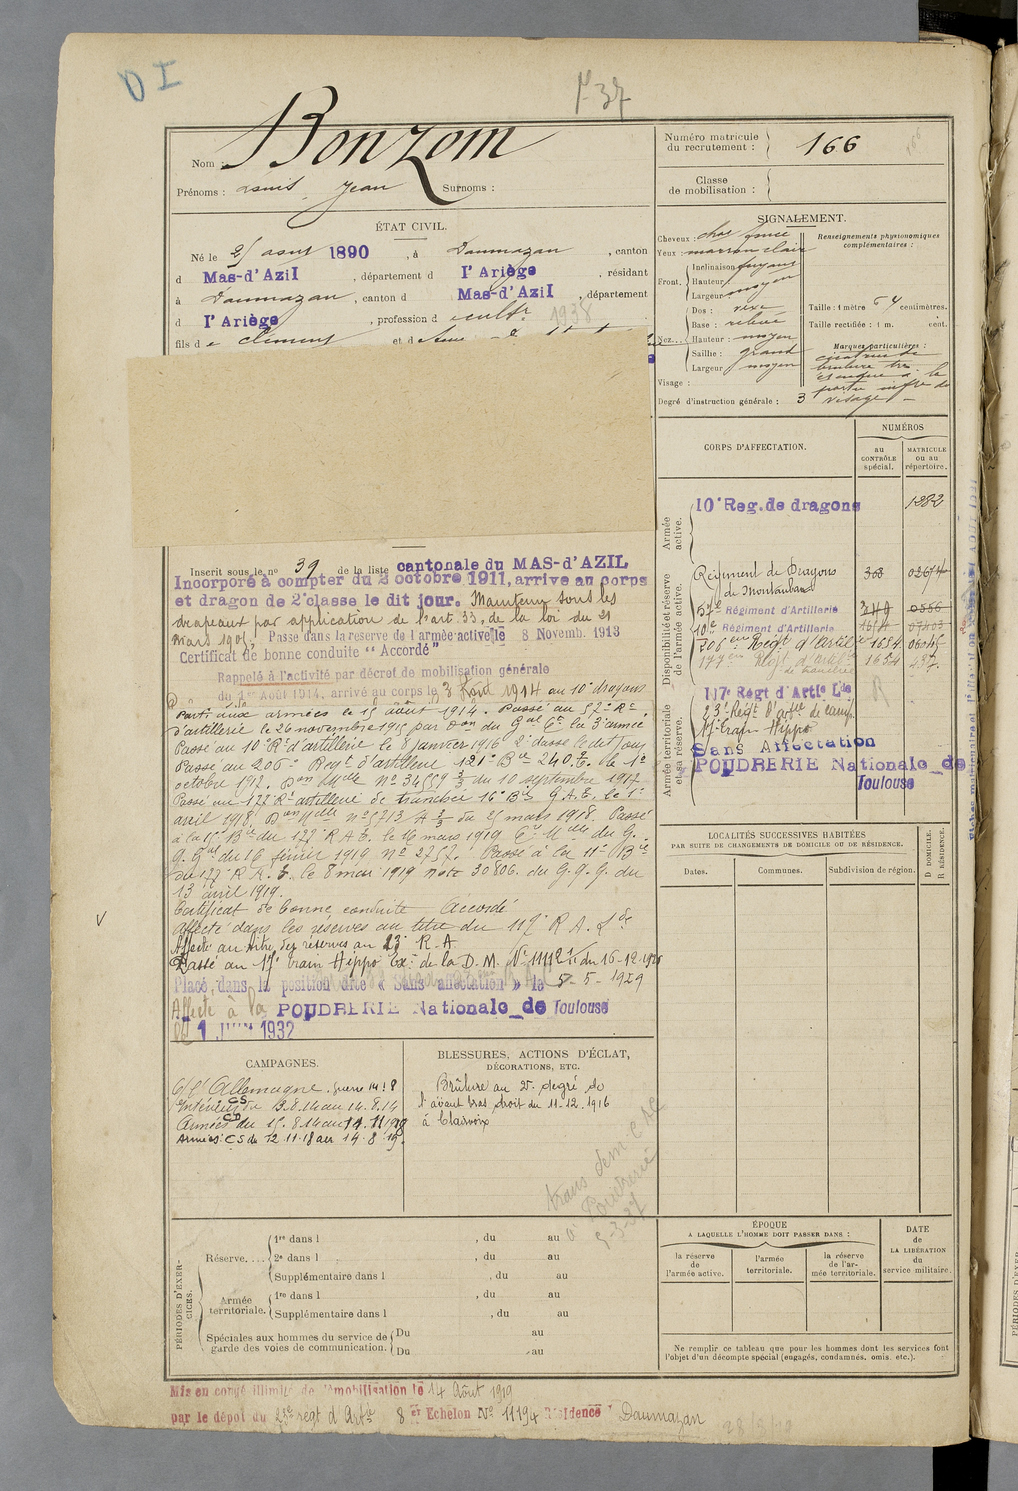 DI
P 37
Nom : Bonzom
Prénoms : Louis Jean Surnoms :
Numéro matricule du recrutement : 166
Classe de mobilisation :
ÉTAT CIVIL.
Né le 25 aout 1890, à Daumazan, canton
d Mas-d'Azil, département d l'Ariège, résidant
à Daumazan, canton d Mas-d'Azil, département
d l'Ariège, profession d cultr 1938
fils de Clément et d
SIGNALEMENT.
Cheveux : chat foncé
Yeux : marron clair
Front. Inclinaison fuyant
Hauteur moyen
Largeur moyen
Nez. Dos : vexe
Base : relevé
Hauteur : moyen
Saillie : grand
Largeur moyen
Visage :
Renseignements physionomiques complémentaires :
Taille : 1 mètre 64 centimètres.
Taille rectifiée : 1 m. cent.
Marques particulières :
cicatrice de
brulure très
étendue à la
partie infre du
visage
Degré d'instruction générale : 3
CORPS D'AFFECTATION.
NUMÉROS
au CONTRÔLE spécial.
MATRICULE ou au répertoire.
Armée active.
10e Reg. de dragons 1282
Disponibilité et réserve de l'armée active.
Régiment de Dragons de Montauban 368
Régiment d'Artillerie
10e Régiment d'Artillerie
206eme Régt d'artil 1654
177eme Régt d'artie de tranchée 1654 287
Armée territoriale et sa réserve.
117e Régt d'Artie Lde R
23e Régt d'artie de camp.
17e train Hippo
Sans Affectation
POUDRERIE Nationale_de Toulouse
Inscrit sous le no 39 de la liste cantonale du MAS-d'AZIL
Incorporé à compter du 2 octobre 1911, arrive au corps
et dragon de 2e classe le dit jour. Maintenu sous les
drapeaux par application de l'art. 33, de la loi du 21
mars 1905, Passé dans la reserve de l'armée active le 8 Novemb. 1913
Certificat de bonne conduite "Accordé"
Rappelé à l'activité par décret de mobilisation générale
du 1er Août 1914, arrivé au corps le 3 Août 1914 au 10e dragons
Parti aux armées le 15 août 1914. Passé au 52e Rt
d'artillerie le 26 novembre 1915 par Don du Gal Ct la 3e armée
Passé au 10e Rt d'artillerie le 8 janvier 1916 2e classe le dit jour
Passé au 206e Regt d'artillerie 121e Bie 240.C. le 1er
octobre 1917. Don Mlle No 34559 3/3 du 10 septembre 1917
Passé au 177e Rt artillerie de tranchée 16e Bie G.A.E. le 1er
avril 1918. Don Mlle No 5713 A 3/3 du 25 mars 1918. Passé
à la 11e Bie du 177e R A E. le 16 mars 1919 Ce Mlle du G.
Q. Gal du 16 février 1919 No 2757. Passé à la 11e Bie
du 177e R.A.E. le 8 mai 1919 note 30806. du G.Q.G. du
13 avril 1919.
Certificat de bonne conduite Accordé
Affecté dans les réserves au titre du 117e R A Lde
Affecté au titre des réserves au 23e R.A.
Passé au 17e train Hippo Ex. de la D.M. No 11112 1/1 du 16-12-1926
Placé dans la position dite « Sans affectation » le 5-5-1929
Affecté à la POUDRERIE Nationale_de Toulouse
le 1 JUIN 1932
LOCALITÉS SUCCESSIVES HABITÉES
PAR SUITE DE CHANGEMENTS DE DOMICILE OU DE RÉSIDENCE.
Dates. Communes. Subdivision de région. D DOMICILE. R RÉSIDENCE.
CAMPAGNES.
C/ l'Allemagne. Guerre 14 18
Intérieur CS du 3.8.14 au 14.8.14
Armées CD du 15.8.14 au 11.11.1918
Armées : CS de 12.11.18 au 14.8.19.
BLESSURES, ACTIONS D'ÉCLAT,
DÉCORATIONS, ETC.
Brûlure au 2e degré de
l'avant bras droit du 11-12.1916
à Claivoix
trans dem C AC
à Poudrerie
5-3-37
PÉRIODES D'EXERCICES.
Réserve.... 1re dans l , du au
2e dans l , du au
Supplémentaire dans l , du au
Armée territoriale. 1re dans l , du au
Supplémentaire dans l , du au
Spéciales aux hommes du service de garde des voies de communication. Du au
Du au
ÉPOQUE
A LAQUELLE L'HOMME DOIT PASSER DANS :
la réserve de l'armée active.
l'armée territoriale.
la réserve de l'armée territoriale.
DATE de LA LIBÉRATION du service militaire.
Ne remplir ce tableau que pour les hommes dont les services font
l'objet d'un décompte spécial (engagés, condamnés, omis, etc.).
Mis en congé illimité de démobilisation le 14 Août 1919
par le dépot du 23e regt d'Artie 8 er Echelon No 11194 Résidence Daumazan
28/8/19